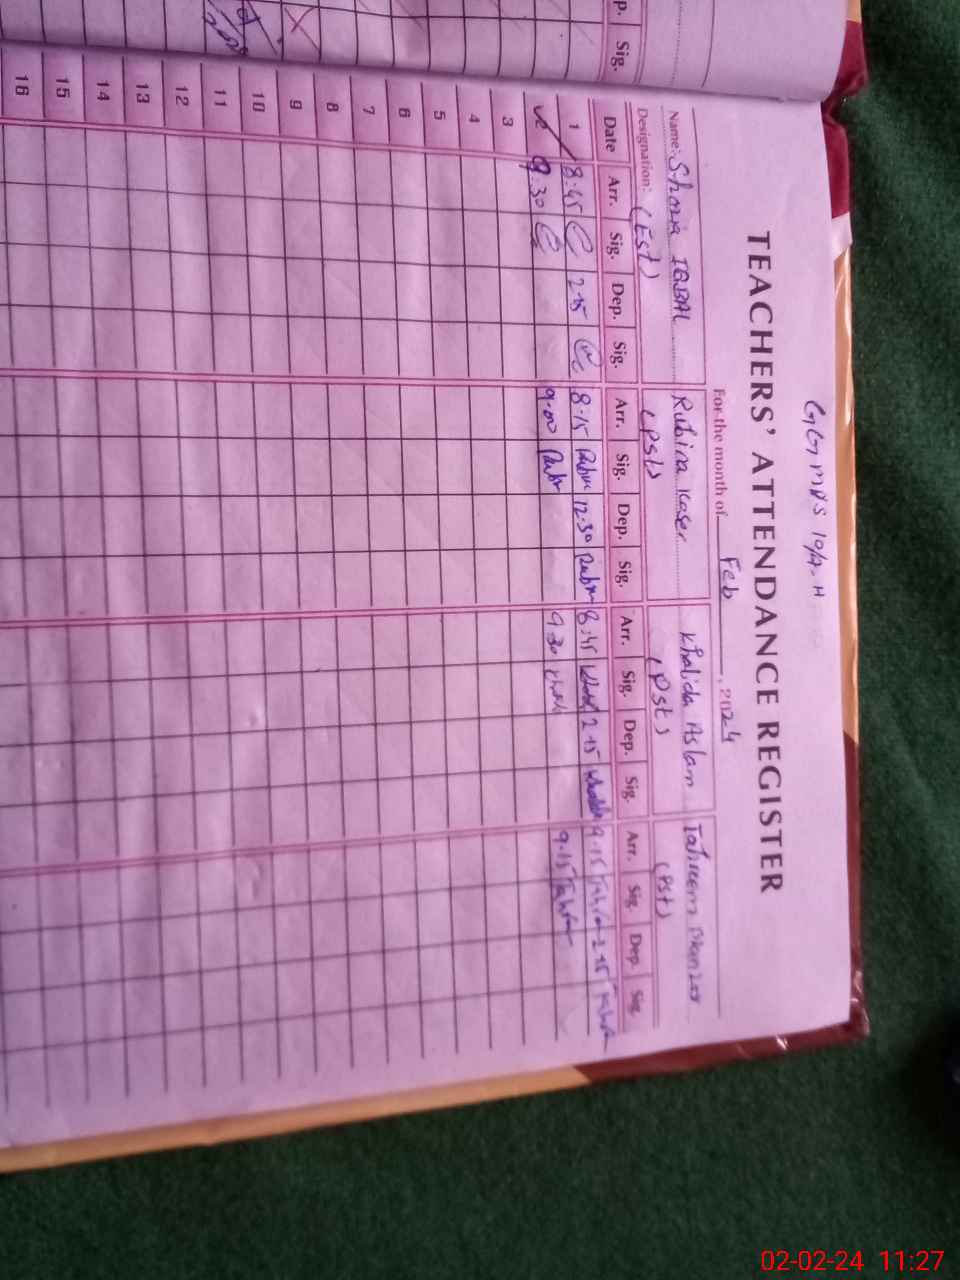 p. Sig.
GGMPS 10/4-H
TEACHERS' ATTENDANCE REGISTER
For the month of Feb, 2024
Name: Shazia IQBAL Rubina Kaser Khalida Aslam Tahreem Manzoor
Designation: (Est) (Pst) (Pst) (Pst)
Date Arr. Sig. Dep. Sig. Arr. Sig. Dep. Sig. Arr. Sig. Dep. Sig. Arr. Sig. Dep. Sig.
1 8:45 2-15 8-15 Rubin 12-30 Rubin 8-45 2-15 Khalida 9-15 2-15
9.30 9-00 Rubin 9 30 9-15
3
4
5
6
7
8
9
10
11
12
13
14
15
16
02-02-24 11:27